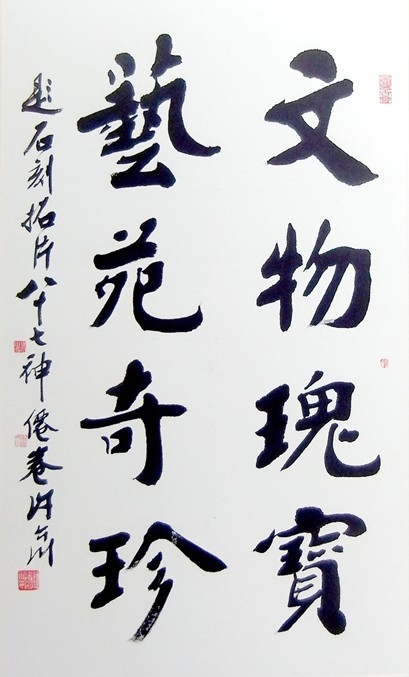 文物瑰寶
藝苑奇珍
題石刻拓片八十七神僊卷